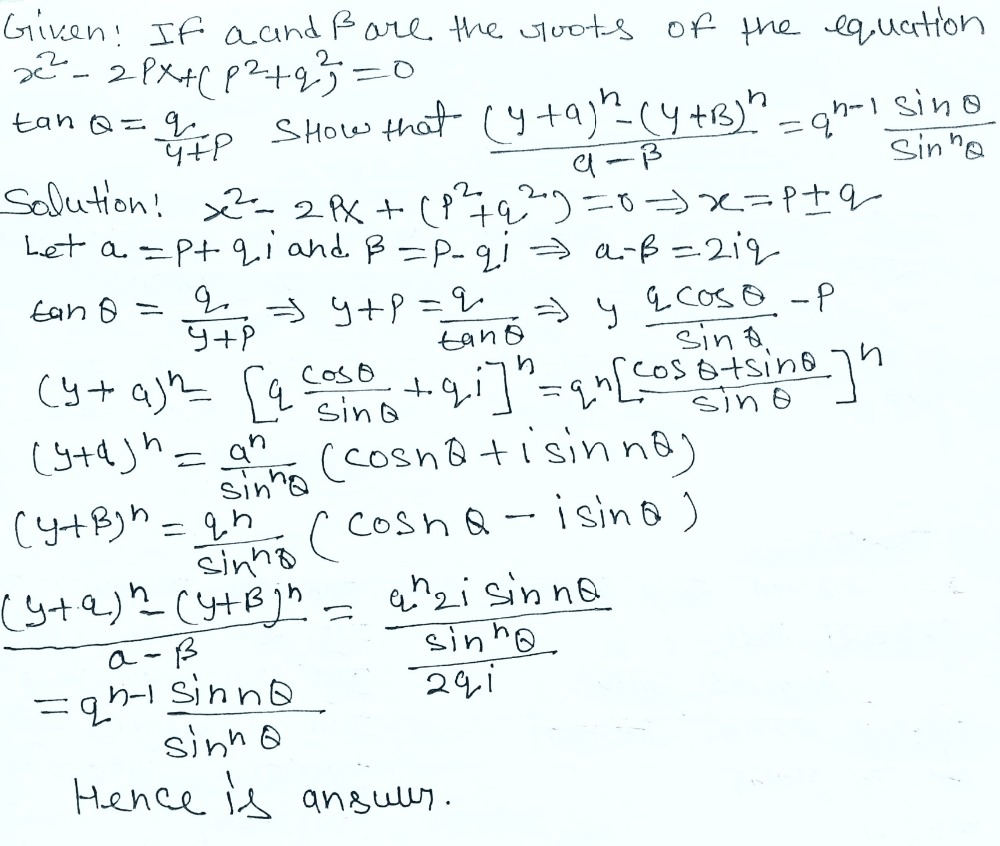 Given: If α and β are the roots of the equation
x² - 2Px+(p²+q²)=0
tan θ = q/(y+p) Show that ((y+α)ⁿ-(y+β)ⁿ)/(α-β) = qⁿ⁻¹ sin θ/sinⁿθ
Solution! x² - 2Px + (p²+q²)=0 ⇒ x=p±q
Let a = p+qi and β = p-qi ⇒ a-β = 2iq
tan θ = q/(y+p) ⇒ y+p = q/tan θ ⇒ y q cos θ/sin θ - P
(y+α)ⁿ = [q cos θ/sin θ + qi]ⁿ = qⁿ[(cos θ+sin θ)/sin θ]ⁿ
(y+α)ⁿ = qⁿ/sinⁿθ (cos nθ + i sin nθ)
(y+β)ⁿ = qⁿ/sinⁿθ (cos nθ - i sin θ)
((y+α)ⁿ-(y+β)ⁿ)/(a-β) = (qⁿ2i sin nθ/sinⁿθ)/2qi
= qⁿ⁻¹ sin nθ/sinⁿ θ
Hence is answer.